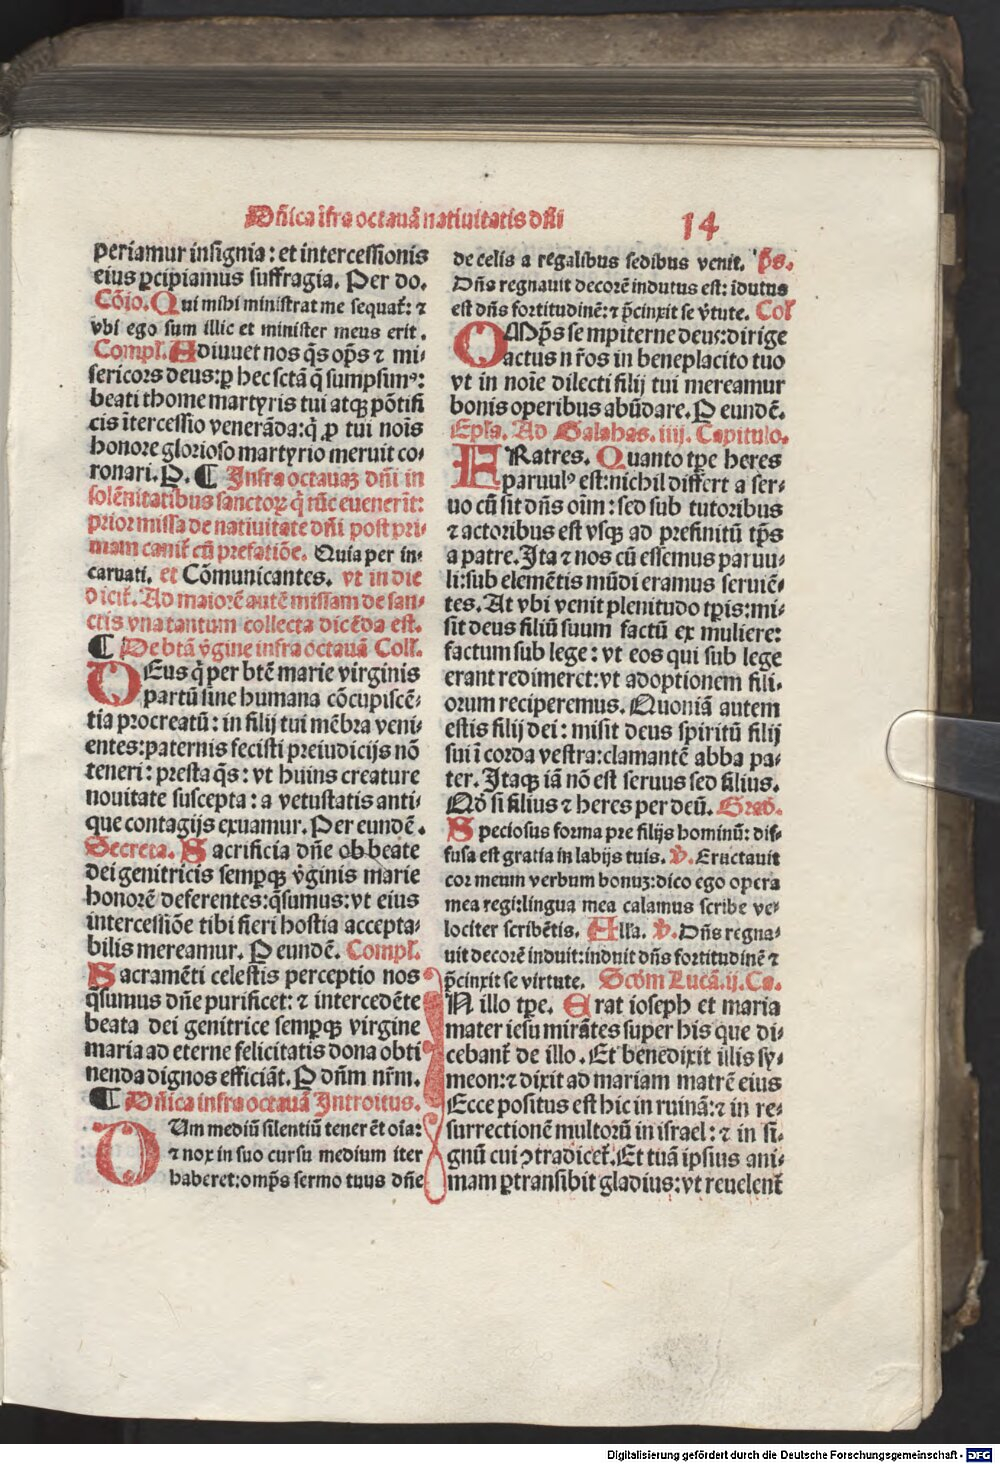 Dñica ĩfra octauã natiuitatis dñi 14
periamur insignia: et intercessionis
eius ꝑcipiamus suffragia. Per do.
Cõio. Qui mihi ministrat me sequat̃: ⁊
vbi ego sum illic et minister meus erit.
Compl̃. Adiuuet nos q̃s op̃s ⁊ mi⸗
sericors deus: ꝑ hec sctã q̃ sumpsimꝰ:
beati thome martyris tui atqꝫ põtifi
cis ĩtercessio venerãda: q̃ ꝓ tui noĩs
honore glorioso martyrio meruit co⸗
ronari. P. ¶ Infra octauaꝫ dñi in
solẽnitatibus sanctoꝝ q̃ tũc euenerĩt:
prior missa de natiuitate dñi post pri⸗
mam canit̃ cũ prefatiõe. Quia per in⸗
carnati. et Cõmunicantes. vt in die
dicit̃. Ad maiorẽ autẽ missam de san⸗
ctis vna tantum collecta dicẽda est.
¶ De btã ṽgine infra octauã Coll̃.
DEus q̃ per btẽ marie virginis
partũ sine humana cõcupiscẽ⸗
tia procreatũ: in filij tui mẽbra veni⸗
entes: paternis fecisti preiudicijs nõ
teneri: presta q̃s: vt huius creature
nouitate suscepta: a vetustatis anti⸗
que contagijs exuamur. Per eundẽ.
Secreta. Sacrificia dñe ob beate
dei genitricis semꝑqꝫ ṽginis marie
honorẽ deferentes: q̃sumus: vt eius
intercessiõe tibi fieri hostia accepta⸗
bilis mereamur. P eundẽ. Compl̃.
Sacramẽti celestis perceptio nos
q̃sumus dñe purificet: ⁊ intercedẽte
beata dei genitrice semꝑqꝫ virgine
maria ad eterne felicitatis dona obti
nenda dignos efficiãt. P dñm nr̃m.
¶ Dñica infra octauã Introitus.
DUm mediũ silentiũ tenerẽt oĩa:
⁊ nox in suo cursu medium iter
haberet: omp̃s sermo tuus dñe
de celis a regalibus sedibus venit. p̃s.
Dñs regnauit decorẽ indutus est: idutus
est dñs fortitudinẽ: ⁊ p̃cinxit se ṽtute. Col̃
OMp̃s sempiterne deus: dirige
actus nr̃os in beneplacito tuo
vt in noĩe dilecti filij tui mereamur
bonis operibus abũdare. P eundẽ.
Epl̃a. Ad Galathas. iiij. Capitulo.
FRatres. Quanto tp̃e heres
paruulꝰ est: nichil differt a ser⸗
uo cũ sit dñs oĩm: sed sub tutoribus
⁊ actoribus est vsqꝫ ad prefinitũ tp̃s
a patre. Ita ⁊ nos cũ essemus paruu⸗
li: sub elemẽtis mũdi eramus seruiẽ⸗
tes. At vbi venit plenitudo tp̃is: mi⸗
sit deus filiũ suum factũ ex muliere:
factum sub lege: vt eos qui sub lege
erant redimeret: vt adoptionem fili⸗
orum reciperemus. Quoniã autem
estis filij dei: misit deus spiritũ filij
sui ĩ corda vestra: clamantẽ abba pa⸗
ter. Itaqꝫ iã nõ est seruus sed filius.
Qð si filius ⁊ heres per deũ. Grad̃.
Speciosus forma pre filijs hominũ: dif⸗
fusa est gratia in labijs tuis. ṽ. Eructauit
cor meum verbum bonuꝫ: dico ego opera
mea regi: lingua mea calamus scribe ve⸗
lociter scribẽtis. All̃a. ṽ. Dñs regna⸗
uit decorẽ induit: induit dñs fortitudinẽ ⁊
p̃cinxit se virtute. Scðm Lucã. ij. Ca.
IN illo tp̃e. Erat ioseph et maria
mater iesu mirãtes super his que di⸗
cebant̃ de illo. Et benedixit illis sy⸗
meon: ⁊ dixit ad mariam matrẽ eius
Ecce positus est hic in ruinã: ⁊ in re⸗
surrectionẽ multorũ in israel: ⁊ in si⸗
gnũ cui ꝯtradicet̃. Et tuã ipsius ani⸗
mam ꝑtransibit gladius: vt reuelent̃
Digitalisierung gefördert durch die Deutsche Forschungsgemeinschaft - DFG